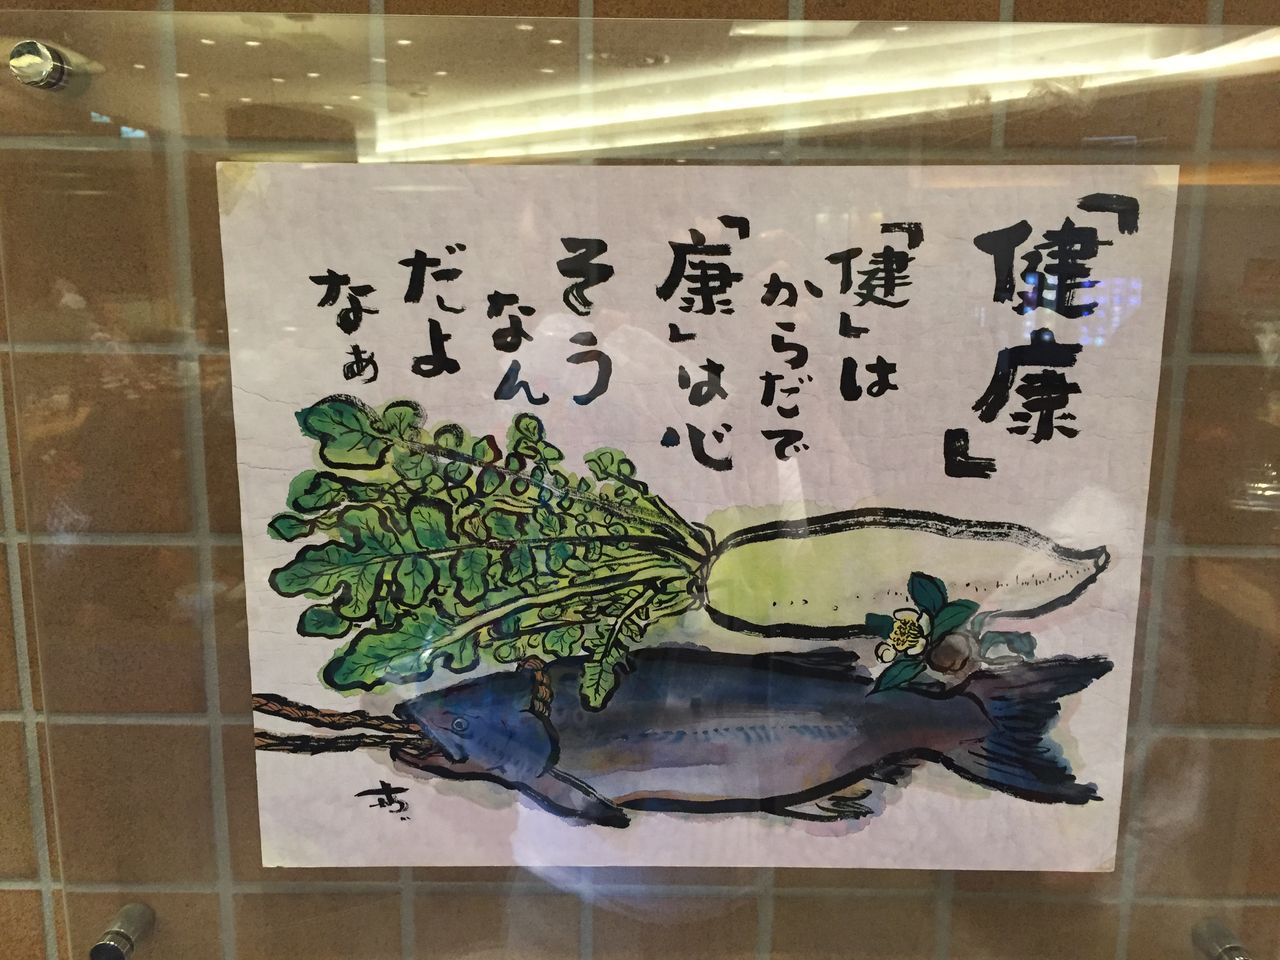 「健康」
「健」は
からだで
「康」は心
そう
なん
だよ
なぁ